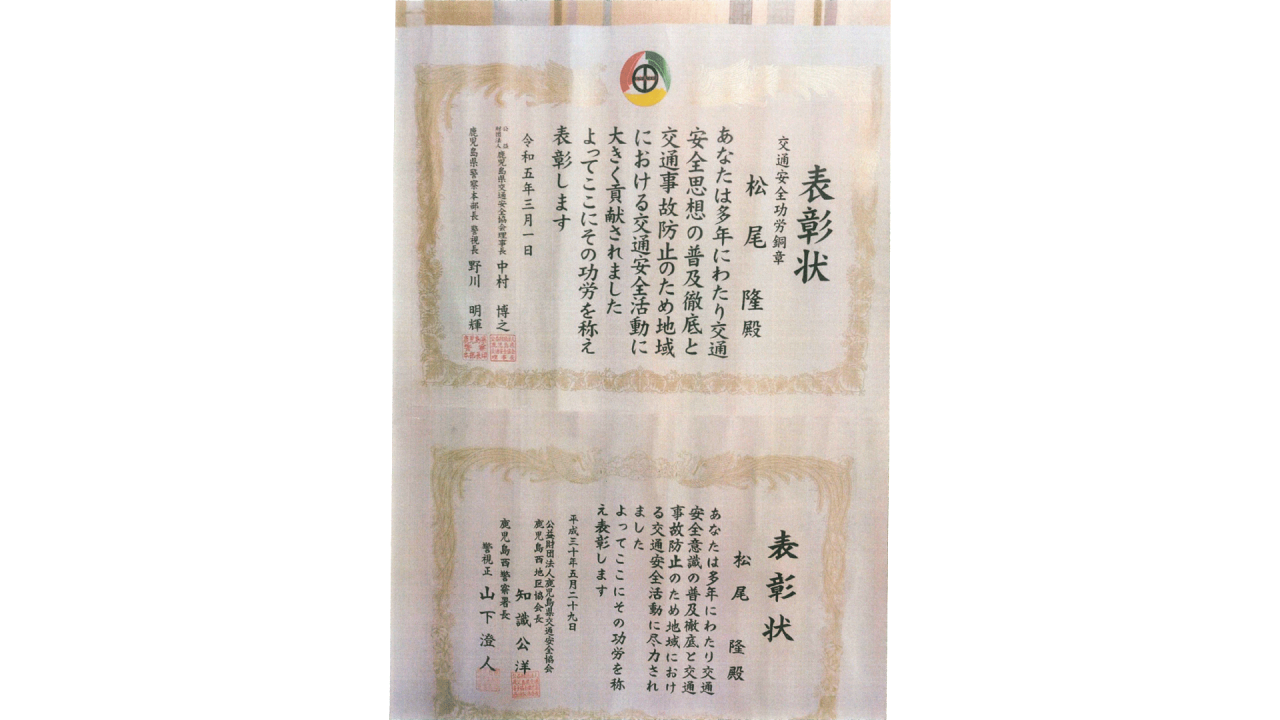 表彰状
交通安全功労銅章
松尾 隆殿
あなたは多年にわたり交通
安全思想の普及徹底と
交通事故防止のため地域
における交通安全活動に
大きく貢献されました
よってここにその功労を称え
表彰します
令和五年三月一日
公益財団法人 鹿児島県交通安全協会理事長 中村 博之
鹿児島県警察本部長 警視長 野川 明輝
表彰状
松尾 隆殿
あなたは多年にわたり交通
安全意識の普及徹底と交通
事故防止のため地域におけ
る交通安全活動に尽力され
ました
よってここにその功労を称
え表彰します
平成三十年五月二十九日
公益財団法人鹿児島県交通安全協会
鹿児島西地区協会長
知識公洋
鹿児島西警察署長
警視正 山下澄人